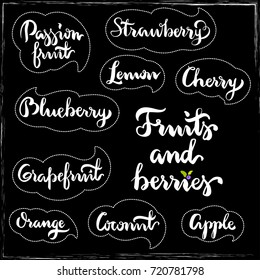 Passion
fruit
Strawberry
Lemon
Cherry
Blueberry
Fruits
and
berries
Grapefruit
Orange
Coconut
Apple
shutterstock.com · 720781798